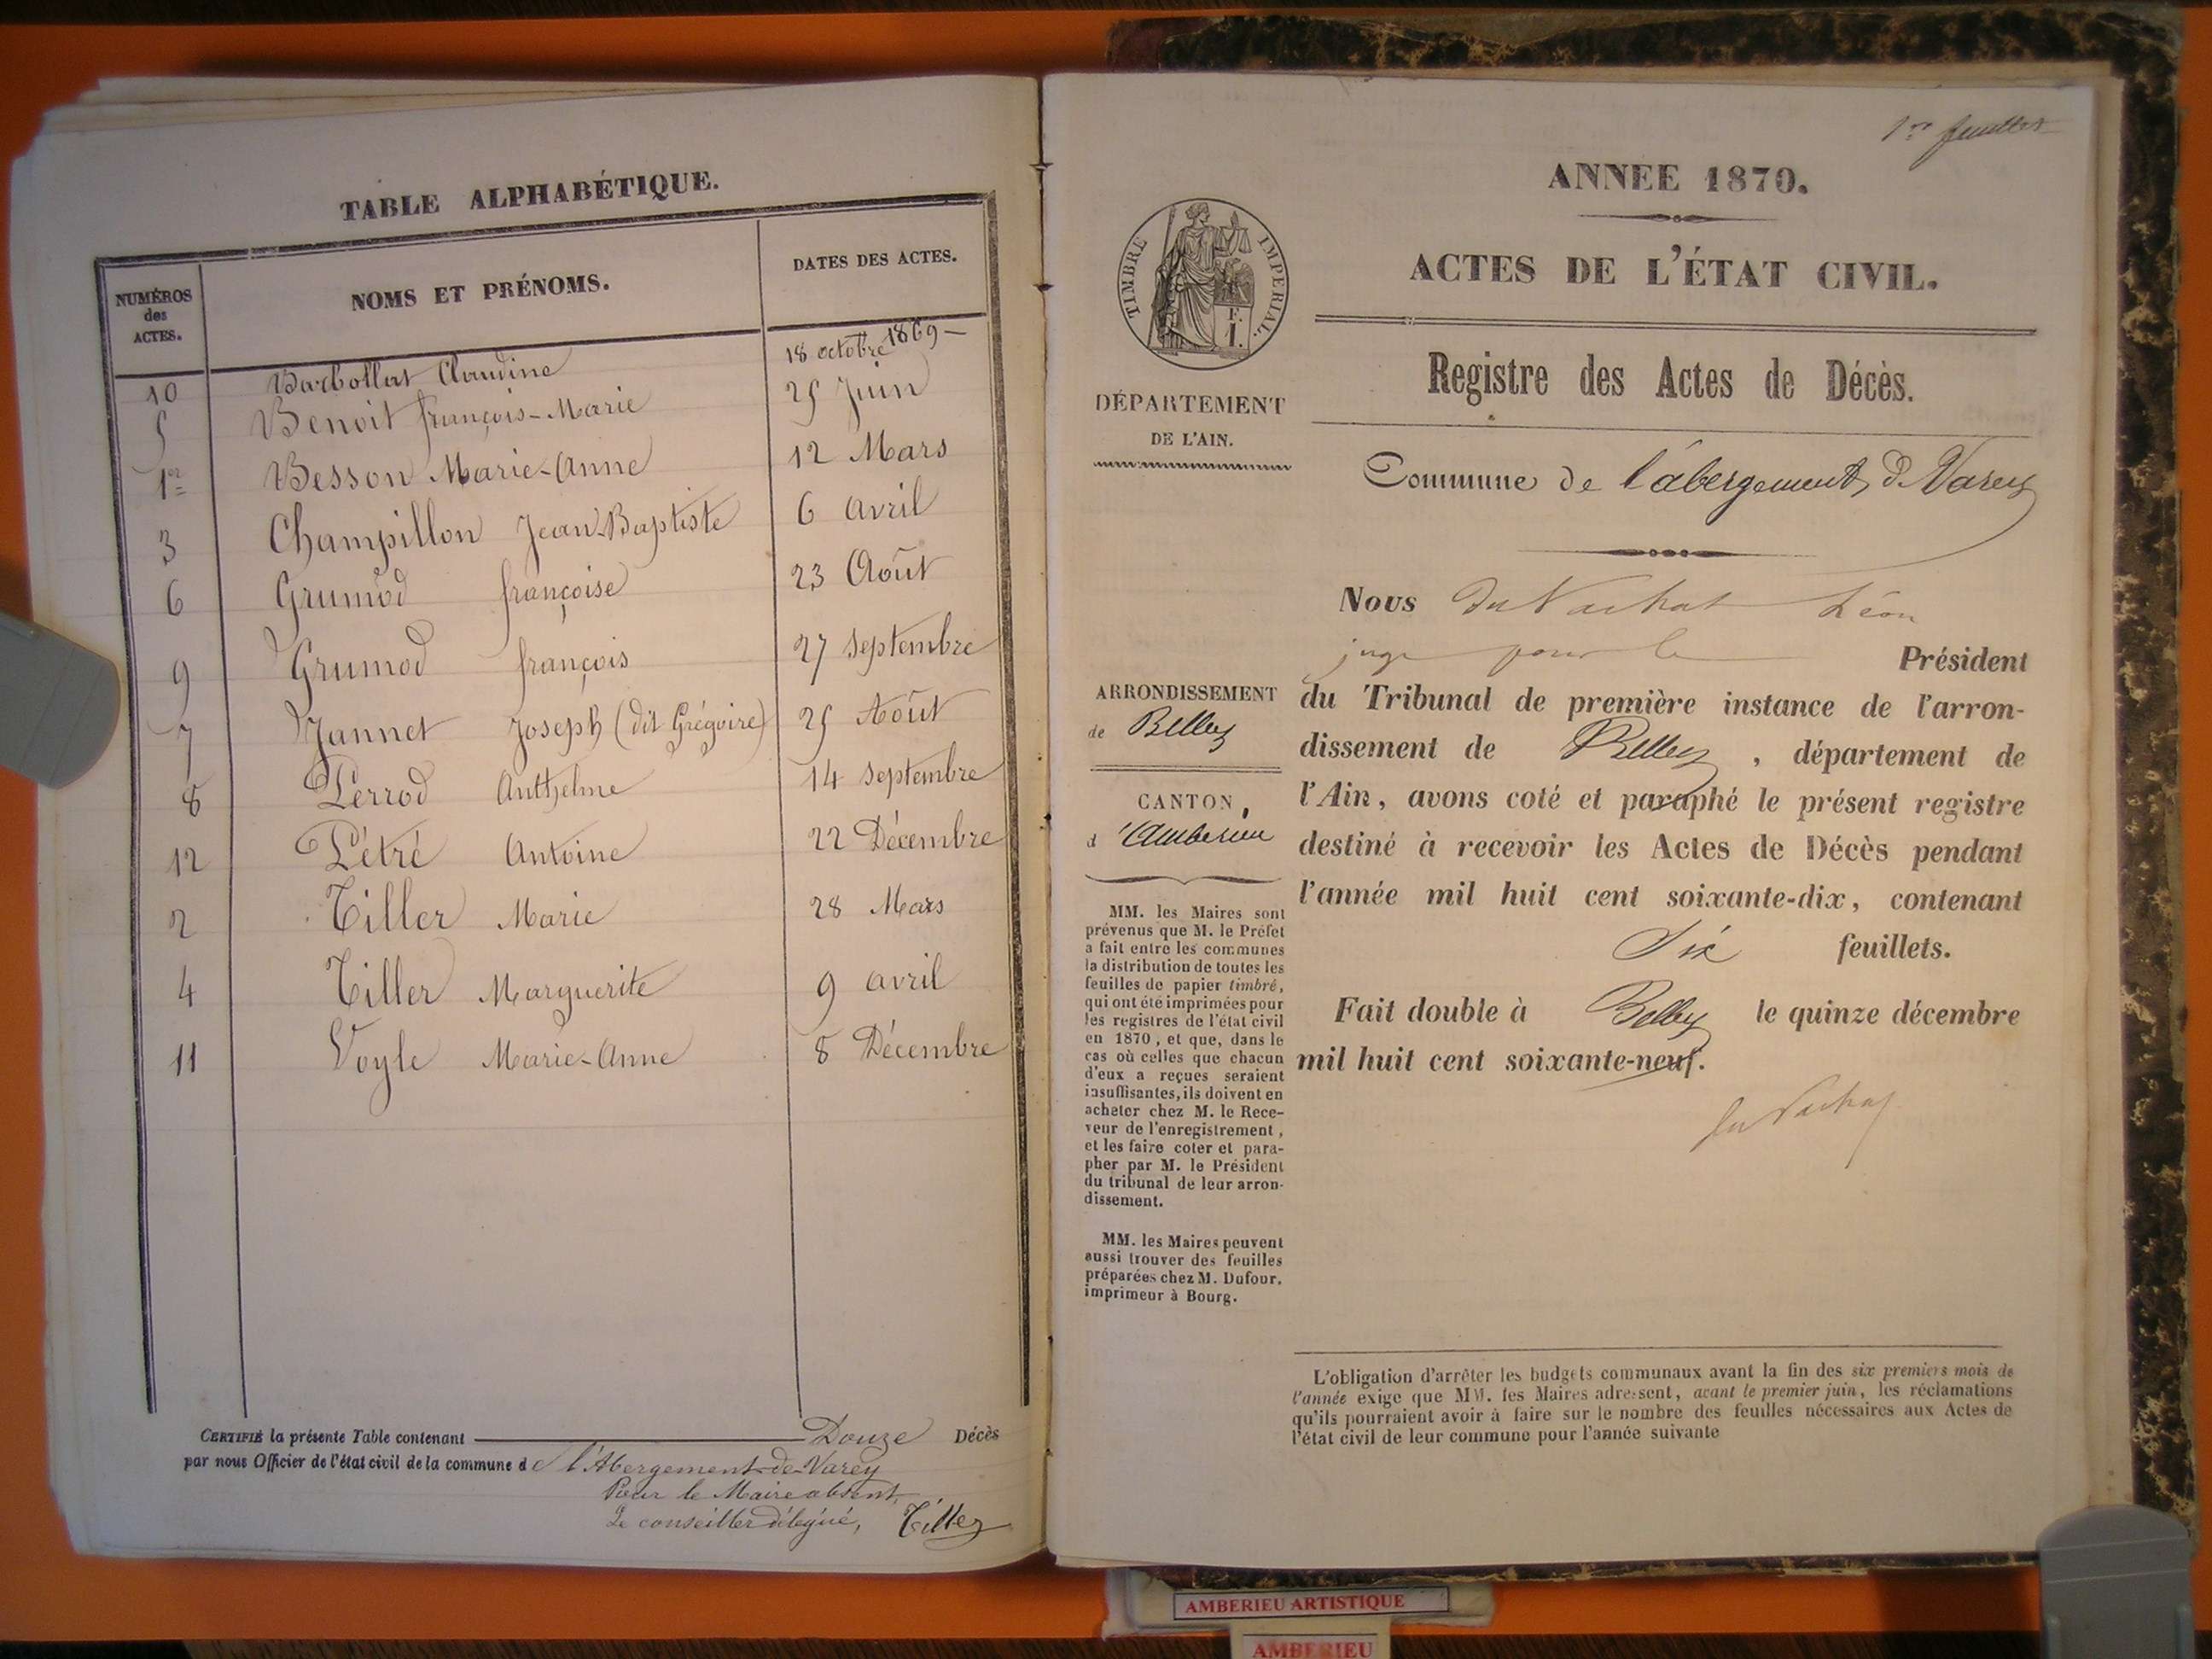 TABLE ALPHABÉTIQUE.
NUMÉROS des ACTES. NOMS ET PRÉNOMS. DATES DES ACTES.
10 Barbollat Claudine 18 octobre 1869 –
5 Benoit françois-Marie 25 Juin
1er Besson Marie-Anne 12 Mars
3 Champillon Jean-Baptiste 6 avril
6 Grumod françoise 23 Août
9 Grumod françois 27 Septembre
7 Jannet Joseph (dit Grégoire) 25 Août
8 Perrod Anthelme 14 Septembre
12 Pétré Antoine 22 Décembre
2 Tiller Marie 28 Mars
4 Tiller Marguerite 9 avril
11 Voyle Marie-Anne 8 Décembre
CERTIFIÉ la présente Table contenant Douze Décès
par nous Officier de l'état civil de la commune de l'Abergement-de-Varey
Pour le Maire absent,
Le conseiller délégué, Tiller
1er feuillet
ANNEE 1870.
ACTES DE L'ÉTAT CIVIL.
TIMBRE IMPERIAL.
Registre des Actes de Décès.
DÉPARTEMENT
DE L'AIN.
Commune de l'abergement d Varey
Nous du Vachat Léon
juge pour le Président
du Tribunal de première instance de l'arron-
dissement de Belley, département de
l'Ain, avons coté et paraphé le présent registre
destiné à recevoir les Actes de Décès pendant
l'année mil huit cent soixante-dix, contenant
Six feuillets.
Fait double à Belley le quinze décembre
mil huit cent soixante-neuf.
du Vachat
ARRONDISSEMENT
de Belley
CANTON
d'Amberieu
MM. les Maires sont
prévenus que M. le Préfet
a fait entre les communes
la distribution de toutes les
feuilles de papier timbré,
qui ont été imprimées pour
les registres de l'état civil
en 1870, et que, dans le
cas où celles que chacun
d'eux a reçues seraient
insuffisantes, ils doivent en
acheter chez M. le Rece-
veur de l'enregistrement,
et les faire coter et para-
pher par M. le Président
du tribunal de leur arron-
dissement.
MM. les Maires peuvent
aussi trouver des feuilles
préparées chez M. Dufour,
imprimeur à Bourg.
L'obligation d'arrêter les budgets communaux avant la fin des six premiers mois de
l'année exige que MM. les Maires adressent, avant le premier juin, les réclamations
qu'ils pourraient avoir à faire sur le nombre des feuilles nécessaires aux Actes de
l'état civil de leur commune pour l'année suivante
AMBERIEU ARTISTIQUE
AMBERIEU